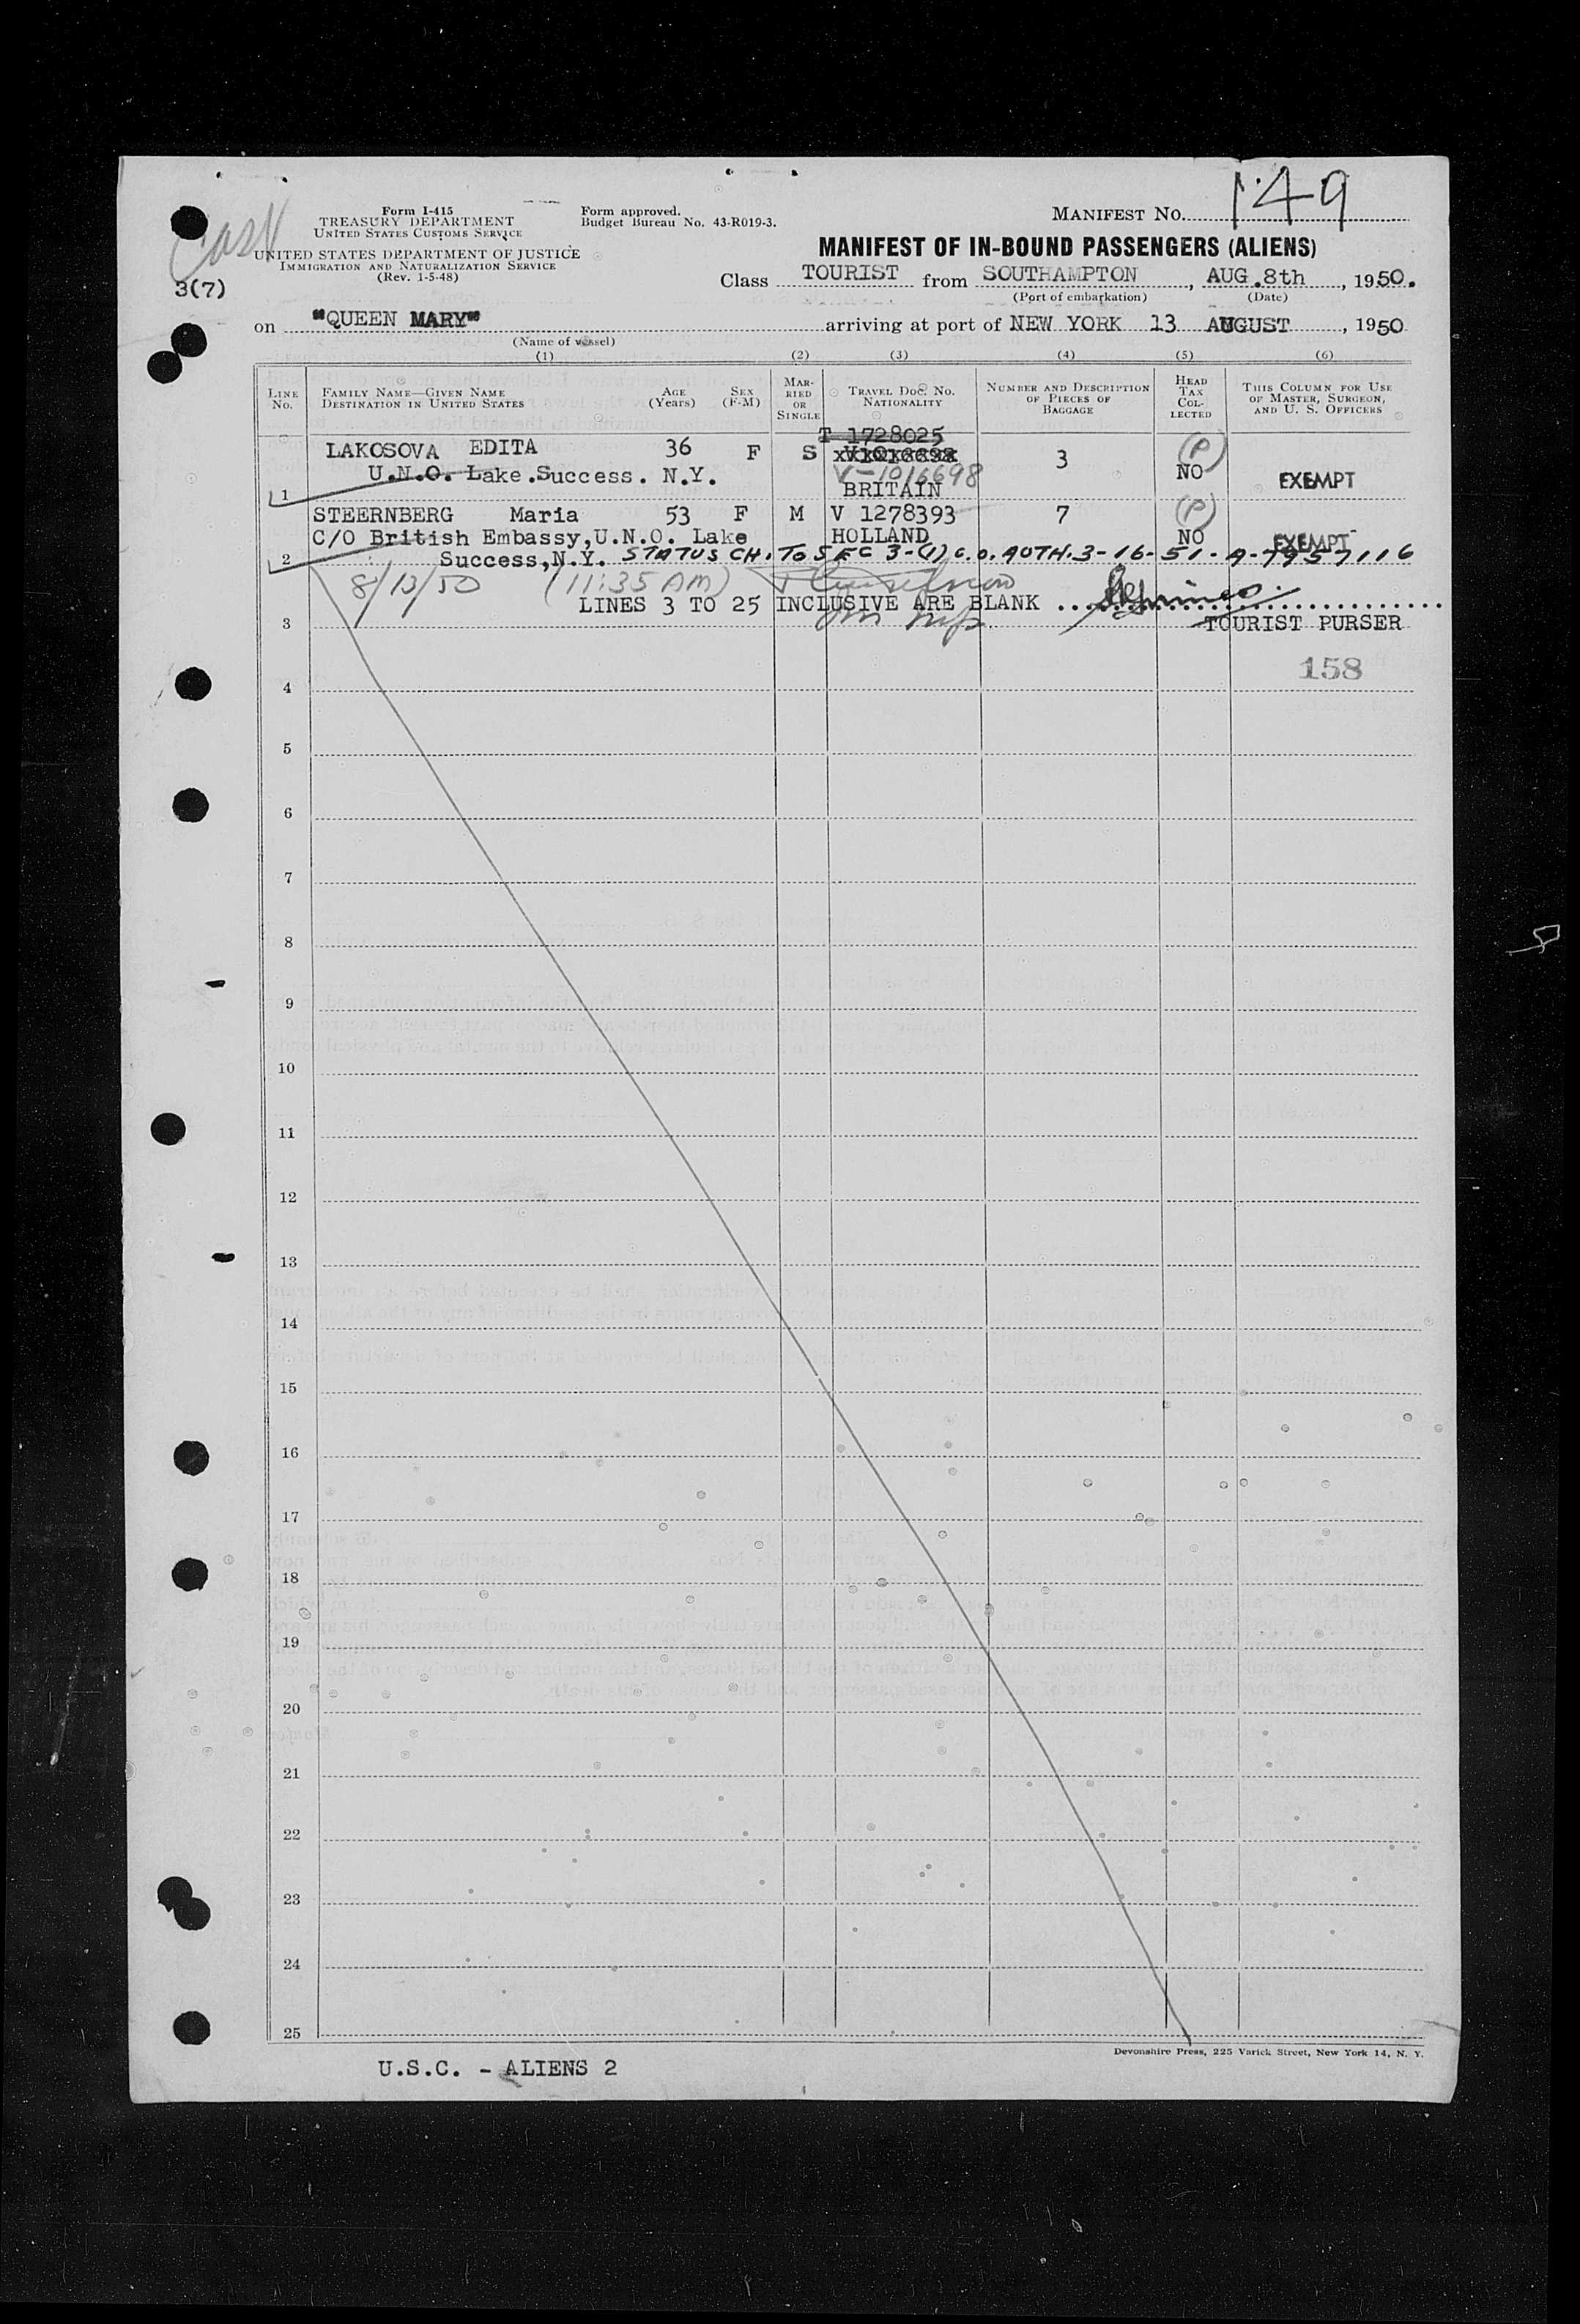 149
Form I-415
TREASURY DEPARTMENT
UNITED STATES CUSTOMS SERVICE
UNITED STATES DEPARTMENT OF JUSTICE
IMMIGRATION AND NATURALIZATION SERVICE
(Rev. 1-5-48)
3(7)
Form approved.
Budget Bureau No. 43-R019-3.
MANIFEST NO.
MANIFEST OF IN-BOUND PASSENGERS (ALIENS)
Class TOURIST from SOUTHAMPTON, AUG.8th, 1950.
(Port of embarkation) (Date)
on "QUEEN MARY" arriving at port of NEW YORK 13 AUGUST, 1950
(Name of vessel)
(1) (2) (3) (4) (5) (6)
LINE NO.
FAMILY NAME—GIVEN NAME
DESTINATION IN UNITED STATES
AGE (Years)
SEX (F-M)
MARRIED OR SINGLE
TRAVEL DOC. NO. NATIONALITY
NUMBER AND DESCRIPTION OF PIECES OF BAGGAGE
HEAD TAX COLLECTED
THIS COLUMN FOR USE OF MASTER, SURGEON, AND U. S. OFFICERS
T 1728025
LAKOSOVA EDITA 36 F S 3 (P)
U.N.O. Lake.Success. N.Y. V-1016698 NO EXEMPT
1 BRITAIN
STEERNBERG Maria 53 F M V 1278393 7 (P)
C/O British Embassy,U.N.O. Lake HOLLAND NO EXEMPT
2 Success,N.Y. STATUS CH. TO SEC 3-(1) C.O. AUTH. 3-16-51-A-7957116
8/13/50 (11:35 AM)
LINES 3 TO 25 INCLUSIVE ARE BLANK
3 TOURIST PURSER
158
4
5
6
7
8
9
10
11
12
13
14
15
16
17
18
19
20
21
22
23
24
25
Devonshire Press, 225 Varick Street, New York 14, N. Y.
U.S.C. - ALIENS 2